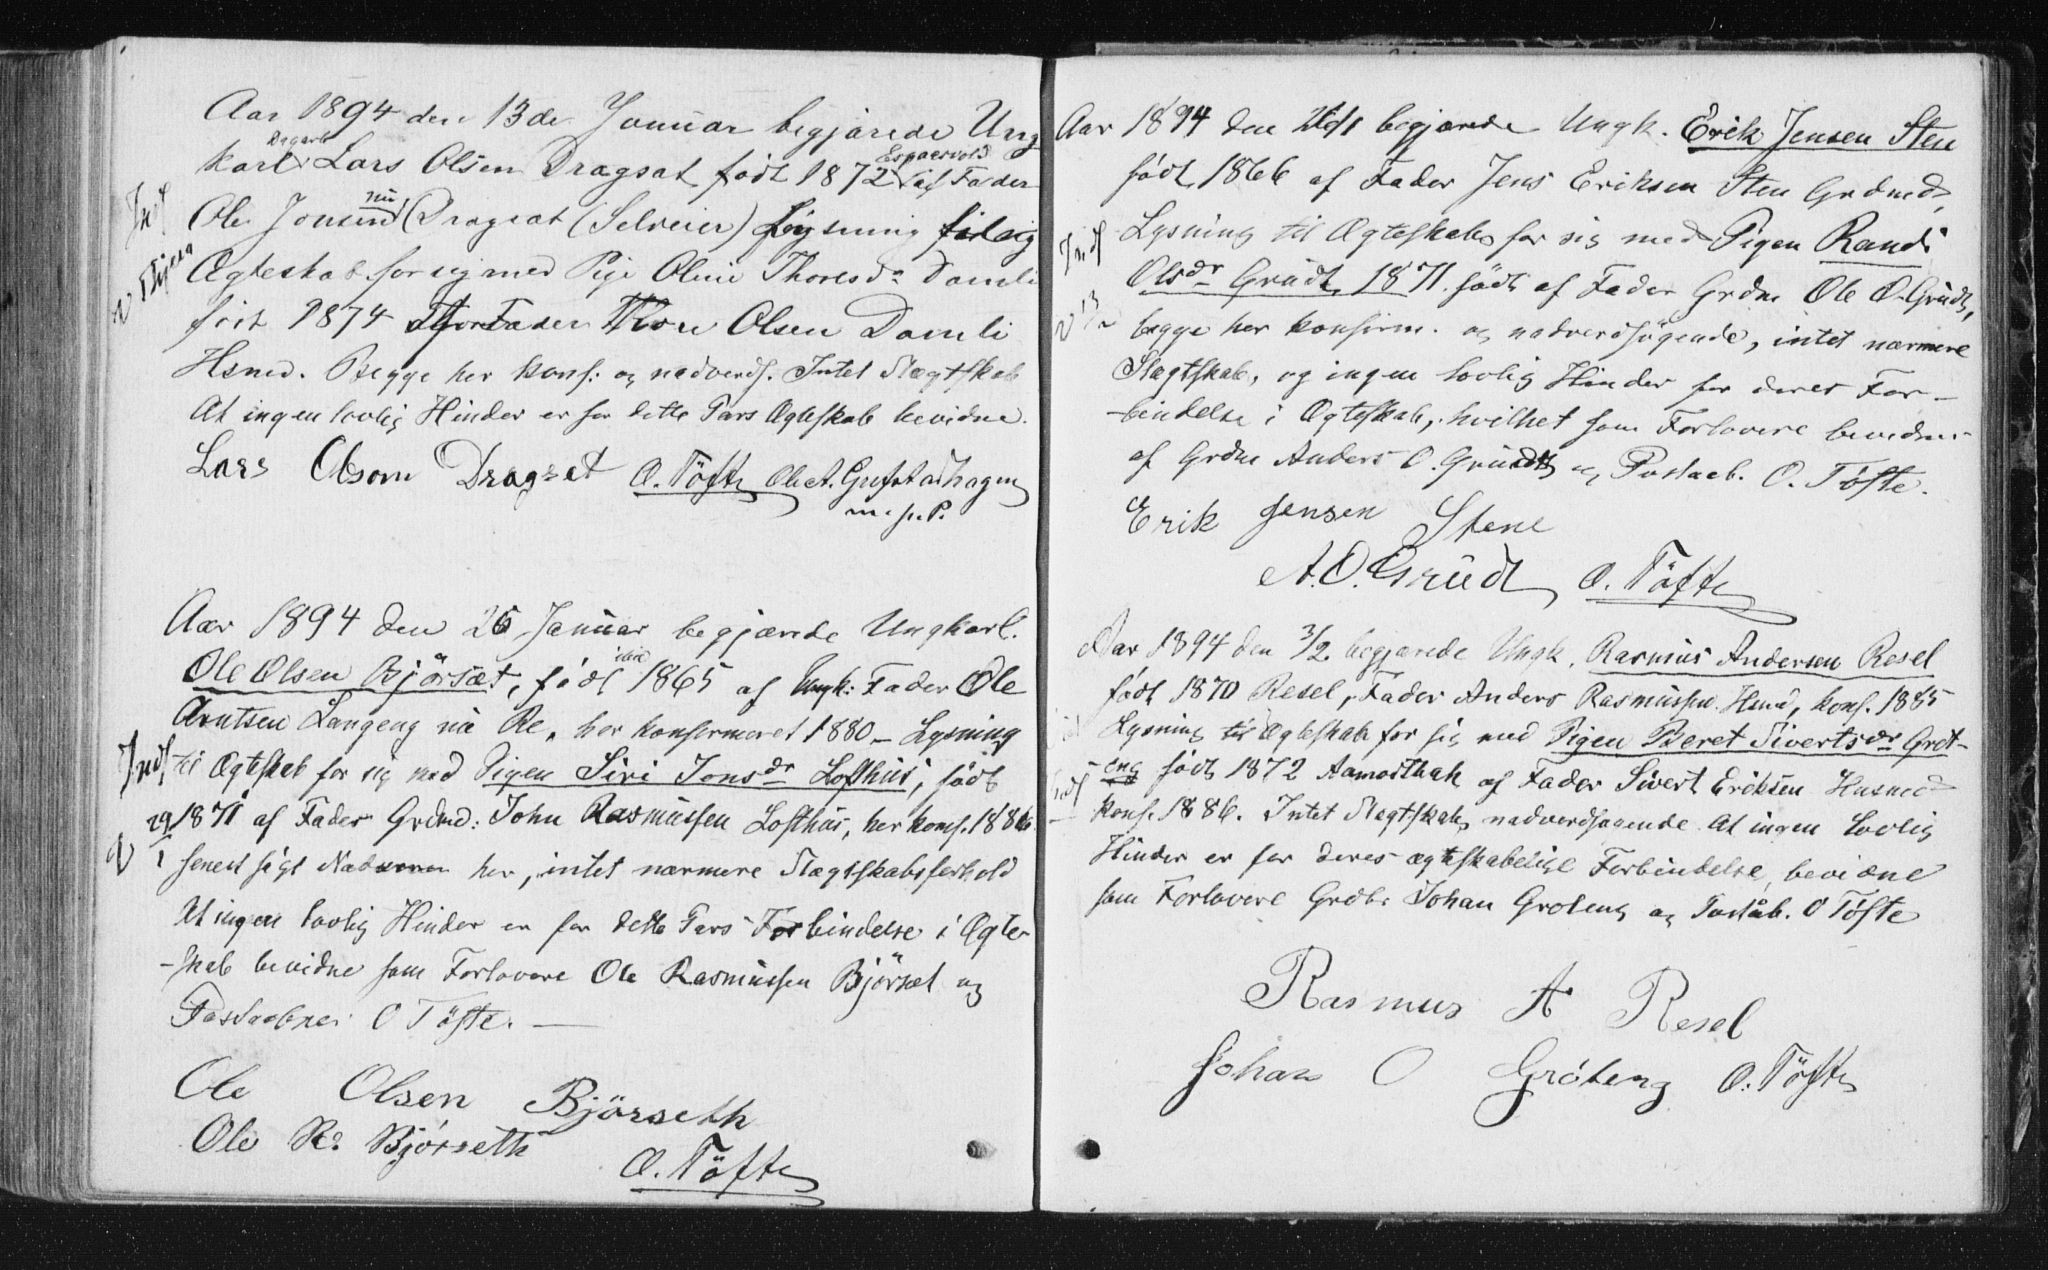 Aar 1894 den 13de Januar begjærede Ung
karl Dagarb Lars Olsen Dragsat født 1872 Espaasvold af Fader
Ole Jonsen nu Dragsat (Selveier) Lysning
Ægteskab for sig med Pige Oline Thoresdr Damli
født 1874 Fader Thore Olsen Damli
Hsmd. Begge her konf: og nadverds. Intet Slægtskab
At ingen lovlig Hinder er for dette Pars Ægteskab bevidne.
Lars Olsøn Dragset O. Töfte Ole A. Gustadhagen
m. p. P.
Indf
v
Aar 1894 den 26 Januar begjærede Ungkarl.
Ole Olsen Björsæt, født ibid 1865 af Ungk: Fader Ole
Arntsen Langeng nu Re, her konfirmeret 1880 – Lysning
til Ægteskab for sig med Pigen Siri Jonsdr Lofthus, født
1871 af Fader Grdmd: John Rasmussen Lofthus, her konf. 1886
senest søgt Nadveren her, intet nærmere Slægtskabsforhold
At ingen lovlig Hinder er for dette Pars Forbindelse i Ægte-
-skab bevidne som Forlovere Ole Rasmussen Björset og
Postaabner O Töfte. —
Indf
29/1
v
Ole Olsen Björseth
Ole R: Bjørseth
O. Töfte
Aar 1894 den 26/1 begjærede Ungk. Erik Jensen Sten
født 1866 af Fader Jens Eriksen Sten Grdmd,
Lysning til Ægteskab for sig med Pigen Randi
Olsdr Grudt, 1871 født af Fader Grdm Ole O. Grudt,
begge her konfirm. og nadverdsøgende, intet nærmere
Slægtskab, og ingen lovlig Hinder for deres For-
-bindelse i Ægteskab, hvilket som Forlovere bevidnes
af Grdm Anders O. Grudt og Postaab. O. Töfte.
Indf
v
Erik Jensen Stene
A. O. Grudt O. Töfte
Aar 1894 den 3/2 begjærede Ungk. Rasmus Andersen Resel
født 1870 Resel, Fader Anders Rasmussen Hsmd, konf. 1885
Lysning til Ægteskab for sig med Pigen Beret Sivertsdr Grøt-
eng født 1872 af Fader Sivert Eriksen Husmd
konf. 1886. Intet Slægtskab, nadverdsøgende. At ingen lovlig
Hinder er for deres ægteskabelige Forbindelse, bevidne
som Forlovere Grdbr Johan Grøteng og Postaab. O Töfte
Rasmus A Resel
Johan O Grøteng O. Töfte